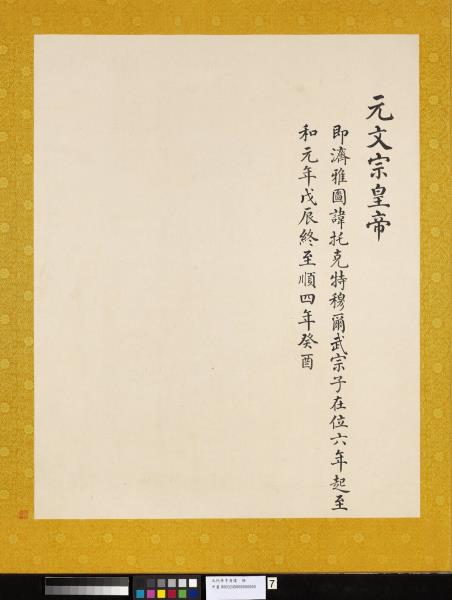 元文宗皇帝
即濟雅圖諱托克特穆爾武宗子在位六年起至
和元年戊辰終至順四年癸酉
7